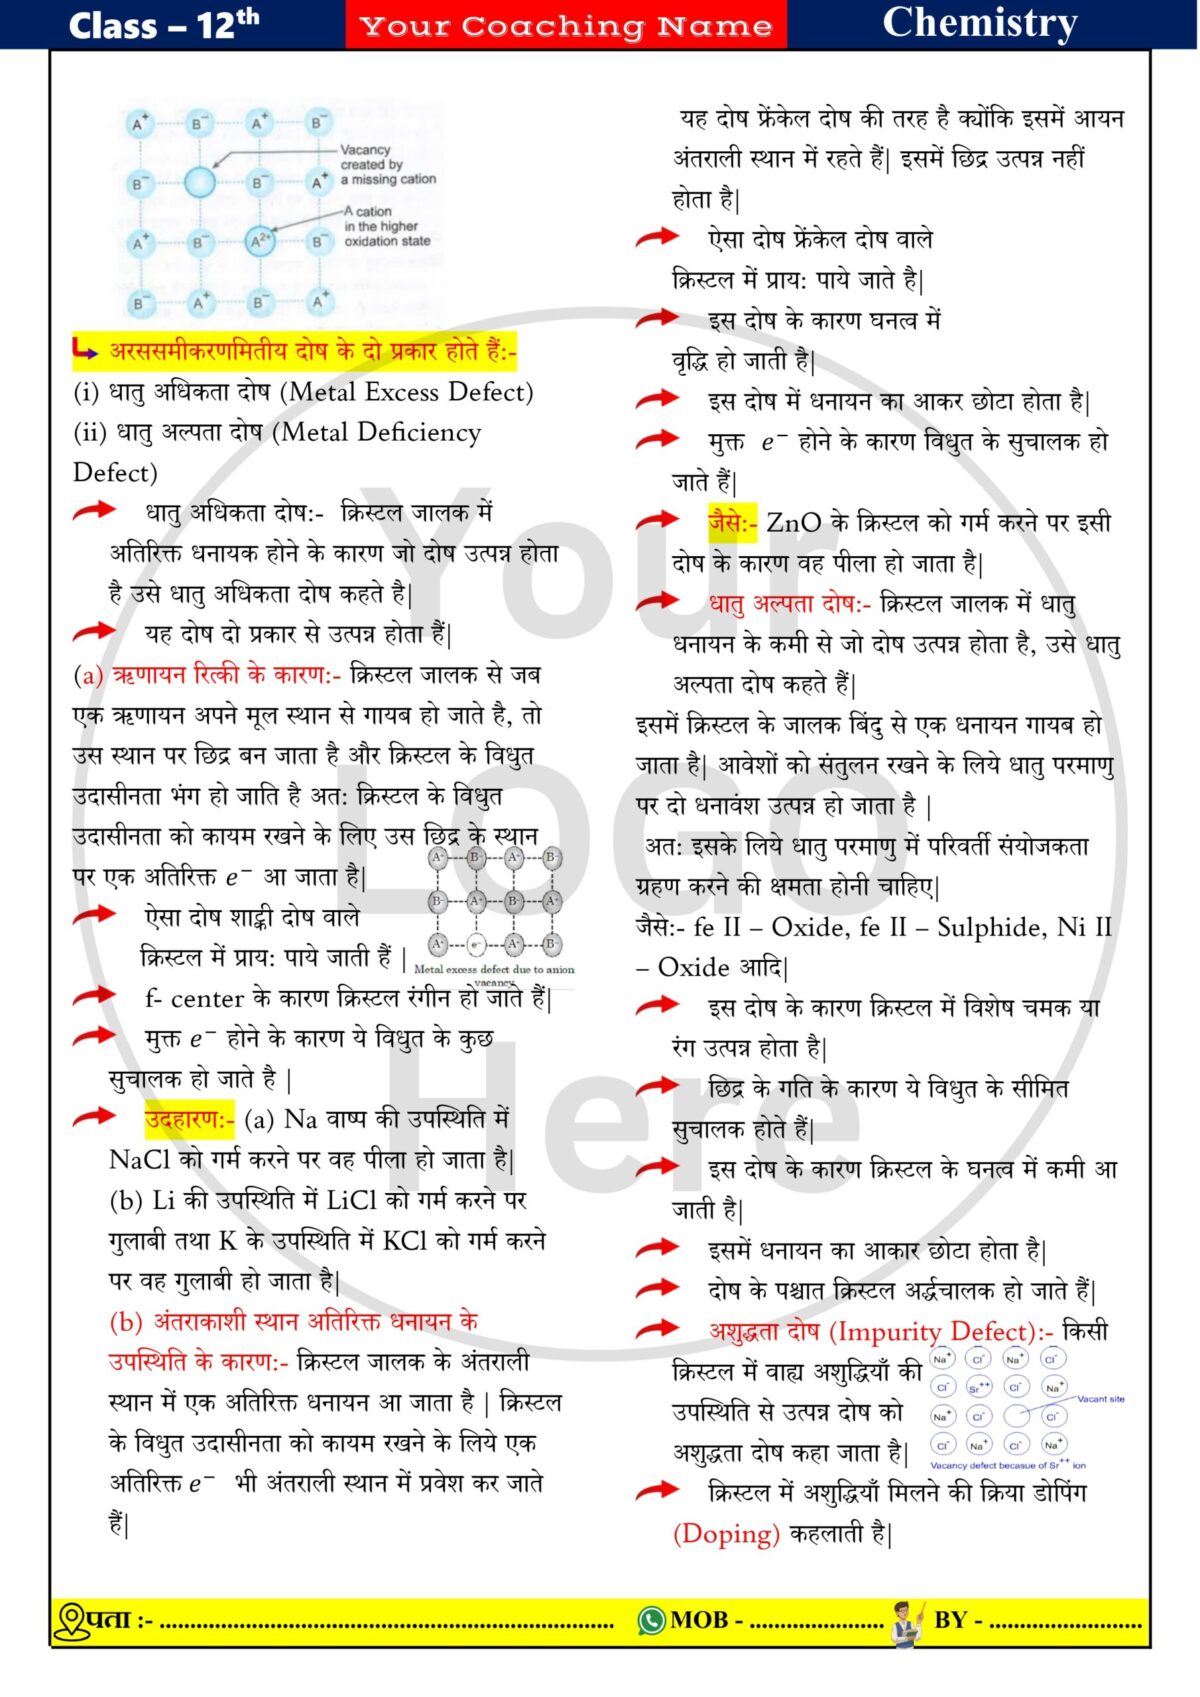 Class – 12th
Your Coaching Name
Chemistry
A+ B− A+ B−
B− B− A+
A+ B− A2+ B−
B− A+ B− A+
Vacancy
created by
a missing cation
A cation
in the higher
oxidation state
अरससमीकरणमितीय दोष के दो प्रकार होते हैं:-
(i) धातु अधिकता दोष (Metal Excess Defect)
(ii) धातु अल्पता दोष (Metal Deficiency
Defect)
धातु अधिकता दोष:- क्रिस्टल जालक में
अतिरिक्त धनायक होने के कारण जो दोष उत्पन्न होता
है उसे धातु अधिकता दोष कहते है|
यह दोष दो प्रकार से उत्पन्न होता हैं|
(a) ऋणायन रित्की के कारण:- क्रिस्टल जालक से जब
एक ऋणायन अपने मूल स्थान से गायब हो जाते है, तो
उस स्थान पर छिद्र बन जाता है और क्रिस्टल के विधुत
उदासीनता भंग हो जाति है अत: क्रिस्टल के विधुत
उदासीनता को कायम रखने के लिए उस छिद्र के स्थान
पर एक अतिरिक्त e− आ जाता है|
A+ B- A+ B-
B- A+ B- A+
A+ e- A+ B-
Metal excess defect due to anion
vacancy
ऐसा दोष शाट्की दोष वाले
क्रिस्टल में प्राय: पाये जाती हैं |
f- center के कारण क्रिस्टल रंगीन हो जाते हैं|
मुक्त e− होने के कारण ये विधुत के कुछ
सुचालक हो जाते है |
उदहारण:- (a) Na वाष्प की उपस्थिति में
NaCl को गर्म करने पर वह पीला हो जाता है|
(b) Li की उपस्थिति में LiCl को गर्म करने पर
गुलाबी तथा K के उपस्थिति में KCl को गर्म करने
पर वह गुलाबी हो जाता है|
(b) अंतराकाशी स्थान अतिरिक्त धनायन के
उपस्थिति के कारण:- क्रिस्टल जालक के अंतराली
स्थान में एक अतिरिक्त धनायन आ जाता है | क्रिस्टल
के विधुत उदासीनता को कायम रखने के लिये एक
अतिरिक्त e− भी अंतराली स्थान में प्रवेश कर जाते
हैं|
यह दोष फ्रेंकेल दोष की तरह है क्योंकि इसमें आयन
अंतराली स्थान में रहते हैं| इसमें छिद्र उत्पन्न नहीं
होता है|
ऐसा दोष फ्रेंकेल दोष वाले
क्रिस्टल में प्राय: पाये जाते है|
इस दोष के कारण घनत्व में
वृद्धि हो जाती है|
इस दोष में धनायन का आकर छोटा होता है|
मुक्त e− होने के कारण विधुत के सुचालक हो
जाते हैं|
जैसे:- ZnO के क्रिस्टल को गर्म करने पर इसी
दोष के कारण वह पीला हो जाता है|
धातु अल्पता दोष:- क्रिस्टल जालक में धातु
धनायन के कमी से जो दोष उत्पन्न होता है, उसे धातु
अल्पता दोष कहते हैं|
इसमें क्रिस्टल के जालक बिंदु से एक धनायन गायब हो
जाता है| आवेशों को संतुलन रखने के लिये धातु परमाणु
पर दो धनावंश उत्पन्न हो जाता है |
अत: इसके लिये धातु परमाणु में परिवर्ती संयोजकता
ग्रहण करने की क्षमता होनी चाहिए|
जैसे:- fe II – Oxide, fe II – Sulphide, Ni II
– Oxide आदि|
इस दोष के कारण क्रिस्टल में विशेष चमक या
रंग उत्पन्न होता है|
छिद्र के गति के कारण ये विधुत के सीमित
सुचालक होते हैं|
इस दोष के कारण क्रिस्टल के घनत्व में कमी आ
जाती है|
इसमें धनायन का आकार छोटा होता है|
दोष के पश्चात क्रिस्टल अर्द्धचालक हो जाते हैं|
अशुद्धता दोष (Impurity Defect):- किसी
क्रिस्टल में वाह्य अशुद्धियाँ की
उपस्थिति से उत्पन्न दोष को
अशुद्धता दोष कहा जाता है|
Na+ Cl- Na+ Cl-
Cl- Sr++ Cl- Na+
Na+ Cl- Cl-
Cl- Na+ Cl- Na+
Vacant site
Vacancy defect becasue of Sr++ ion
क्रिस्टल में अशुद्धियाँ मिलने की क्रिया डोपिंग
(Doping) कहलाती है|
Your
LOGO
Here
पता :- ....................................................................
MOB - ....................
BY - .......................